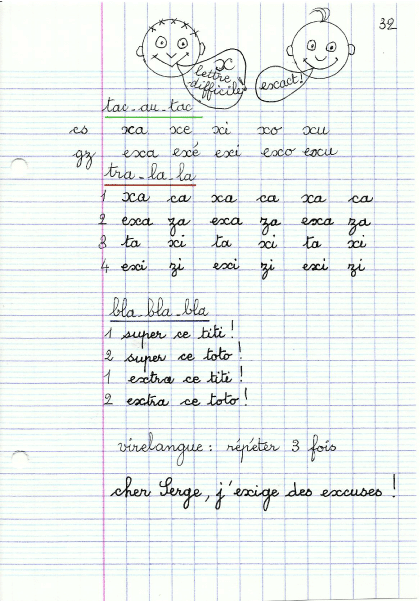 32
x
lettre
difficile!
exact!
tac-au-tac
cs xa xe xi xo xu
gz exa exé exi exo exu
tra-la-la
1 xa ca xa ca xa ca
2 exa za exa za exa za
3 ta xi ta xi ta xi
4 exi zi exi zi exi zi
bla-bla-bla
1 super ce titi!
2 super ce toto!
1 extra ce titi!
2 extra ce toto!
virelangue: répéter 3 fois
cher Serge, j'exige des excuses!